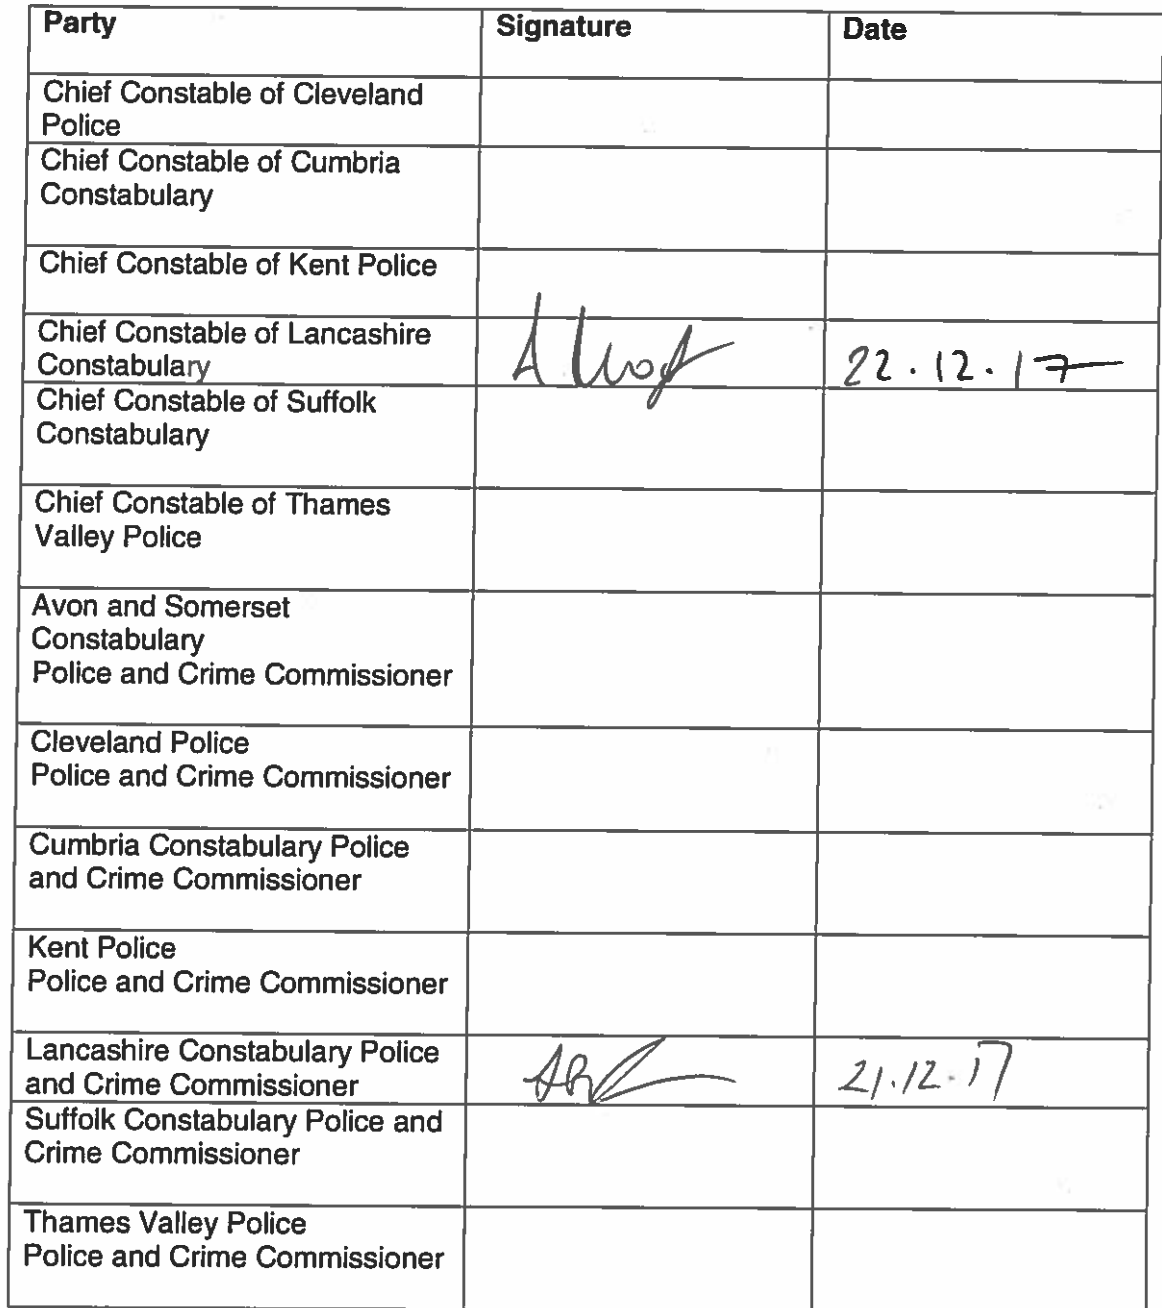 Party Signature Date
Chief Constable of Cleveland
Police
Chief Constable of Cumbria
Constabulary
Chief Constable of Kent Police
Chief Constable of Lancashire
Constabulary 22.12.17
Chief Constable of Suffolk
Constabulary
Chief Constable of Thames
Valley Police
Avon and Somerset
Constabulary
Police and Crime Commissioner
Cleveland Police
Police and Crime Commissioner
Cumbria Constabulary Police
and Crime Commissioner
Kent Police
Police and Crime Commissioner
Lancashire Constabulary Police
and Crime Commissioner 21.12.17
Suffolk Constabulary Police and
Crime Commissioner
Thames Valley Police
Police and Crime Commissioner